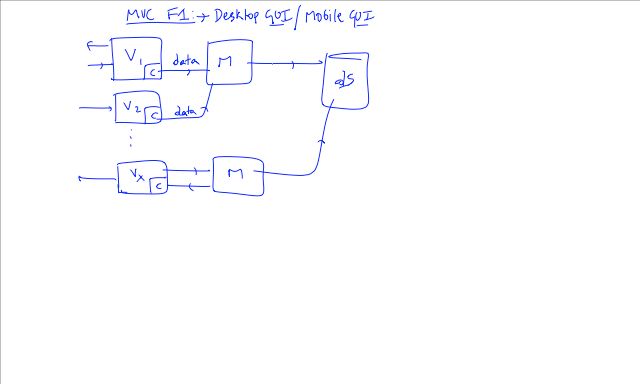 MVC F1:→ Desktop GUI/Mobile GUI
V1
C
data
M
ds
V2
C
data
Vx
C
M